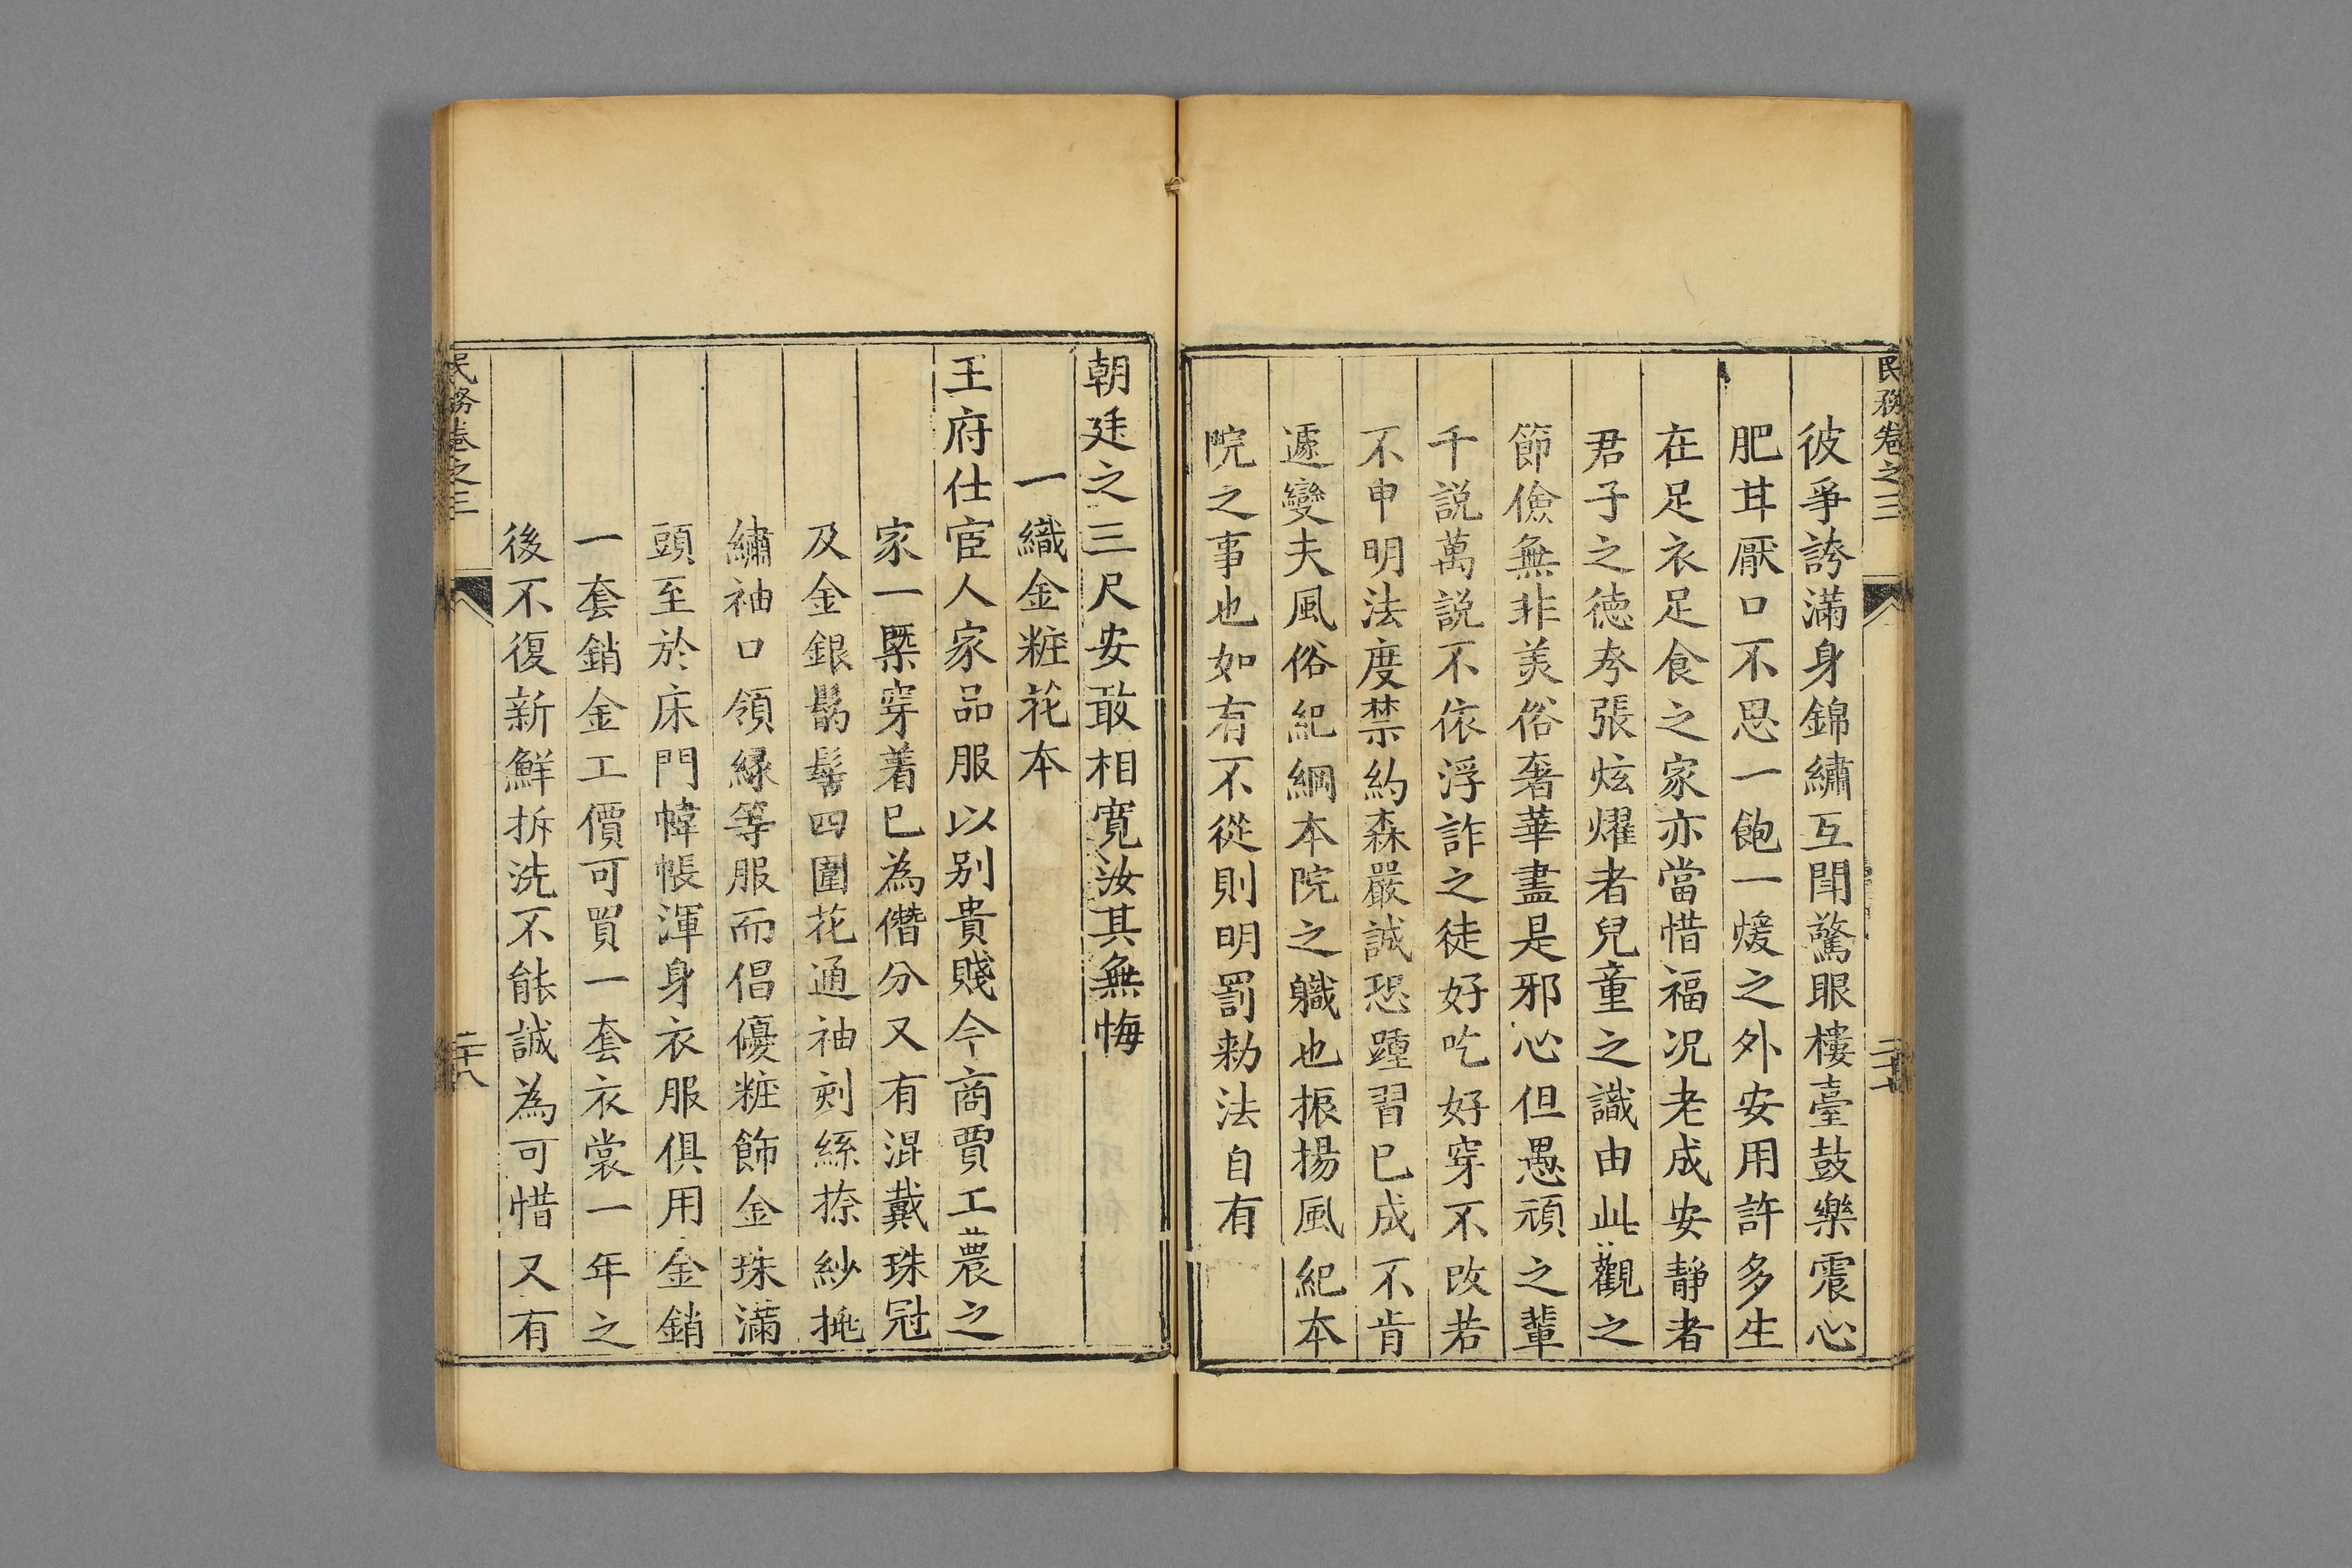 民務卷之三
二十七
彼爭誇滿身錦繡互聞驚眼樓臺鼓樂震心
肥甘厭口不思一飽一煖之外安用許多生
在足衣足食之家亦當惜福况老成安靜者
君子之德夸張炫燿者兒童之識由此觀之
節儉無非美俗奢華盡是邪心但愚頑之輩
千説萬説不依浮詐之徒好吃好穿不改若
不申明法度禁約森嚴誠恐踵習已成不肯
遽變夫風俗紀綱本院之軄也振揚風紀本
院之事也如有不從則明罰勑法自有
朝廷之三尺安敢相寛汝其無悔
一織金粧花本
王府仕宦人家品服以别貴賤今商賈工農之
家一槩穿着已為僭分又有混戴珠冠
及金銀鬏髻四圍花通袖刻絲捺紗挑
繡袖口領緣等服而倡優粧飾金珠滿
頭至於床門幃帳渾身衣服俱用金銷
一套銷金工價可買一套衣裳一年之
後不復新鮮拆洗不能誠為可惜又有
民務卷之三
二十八